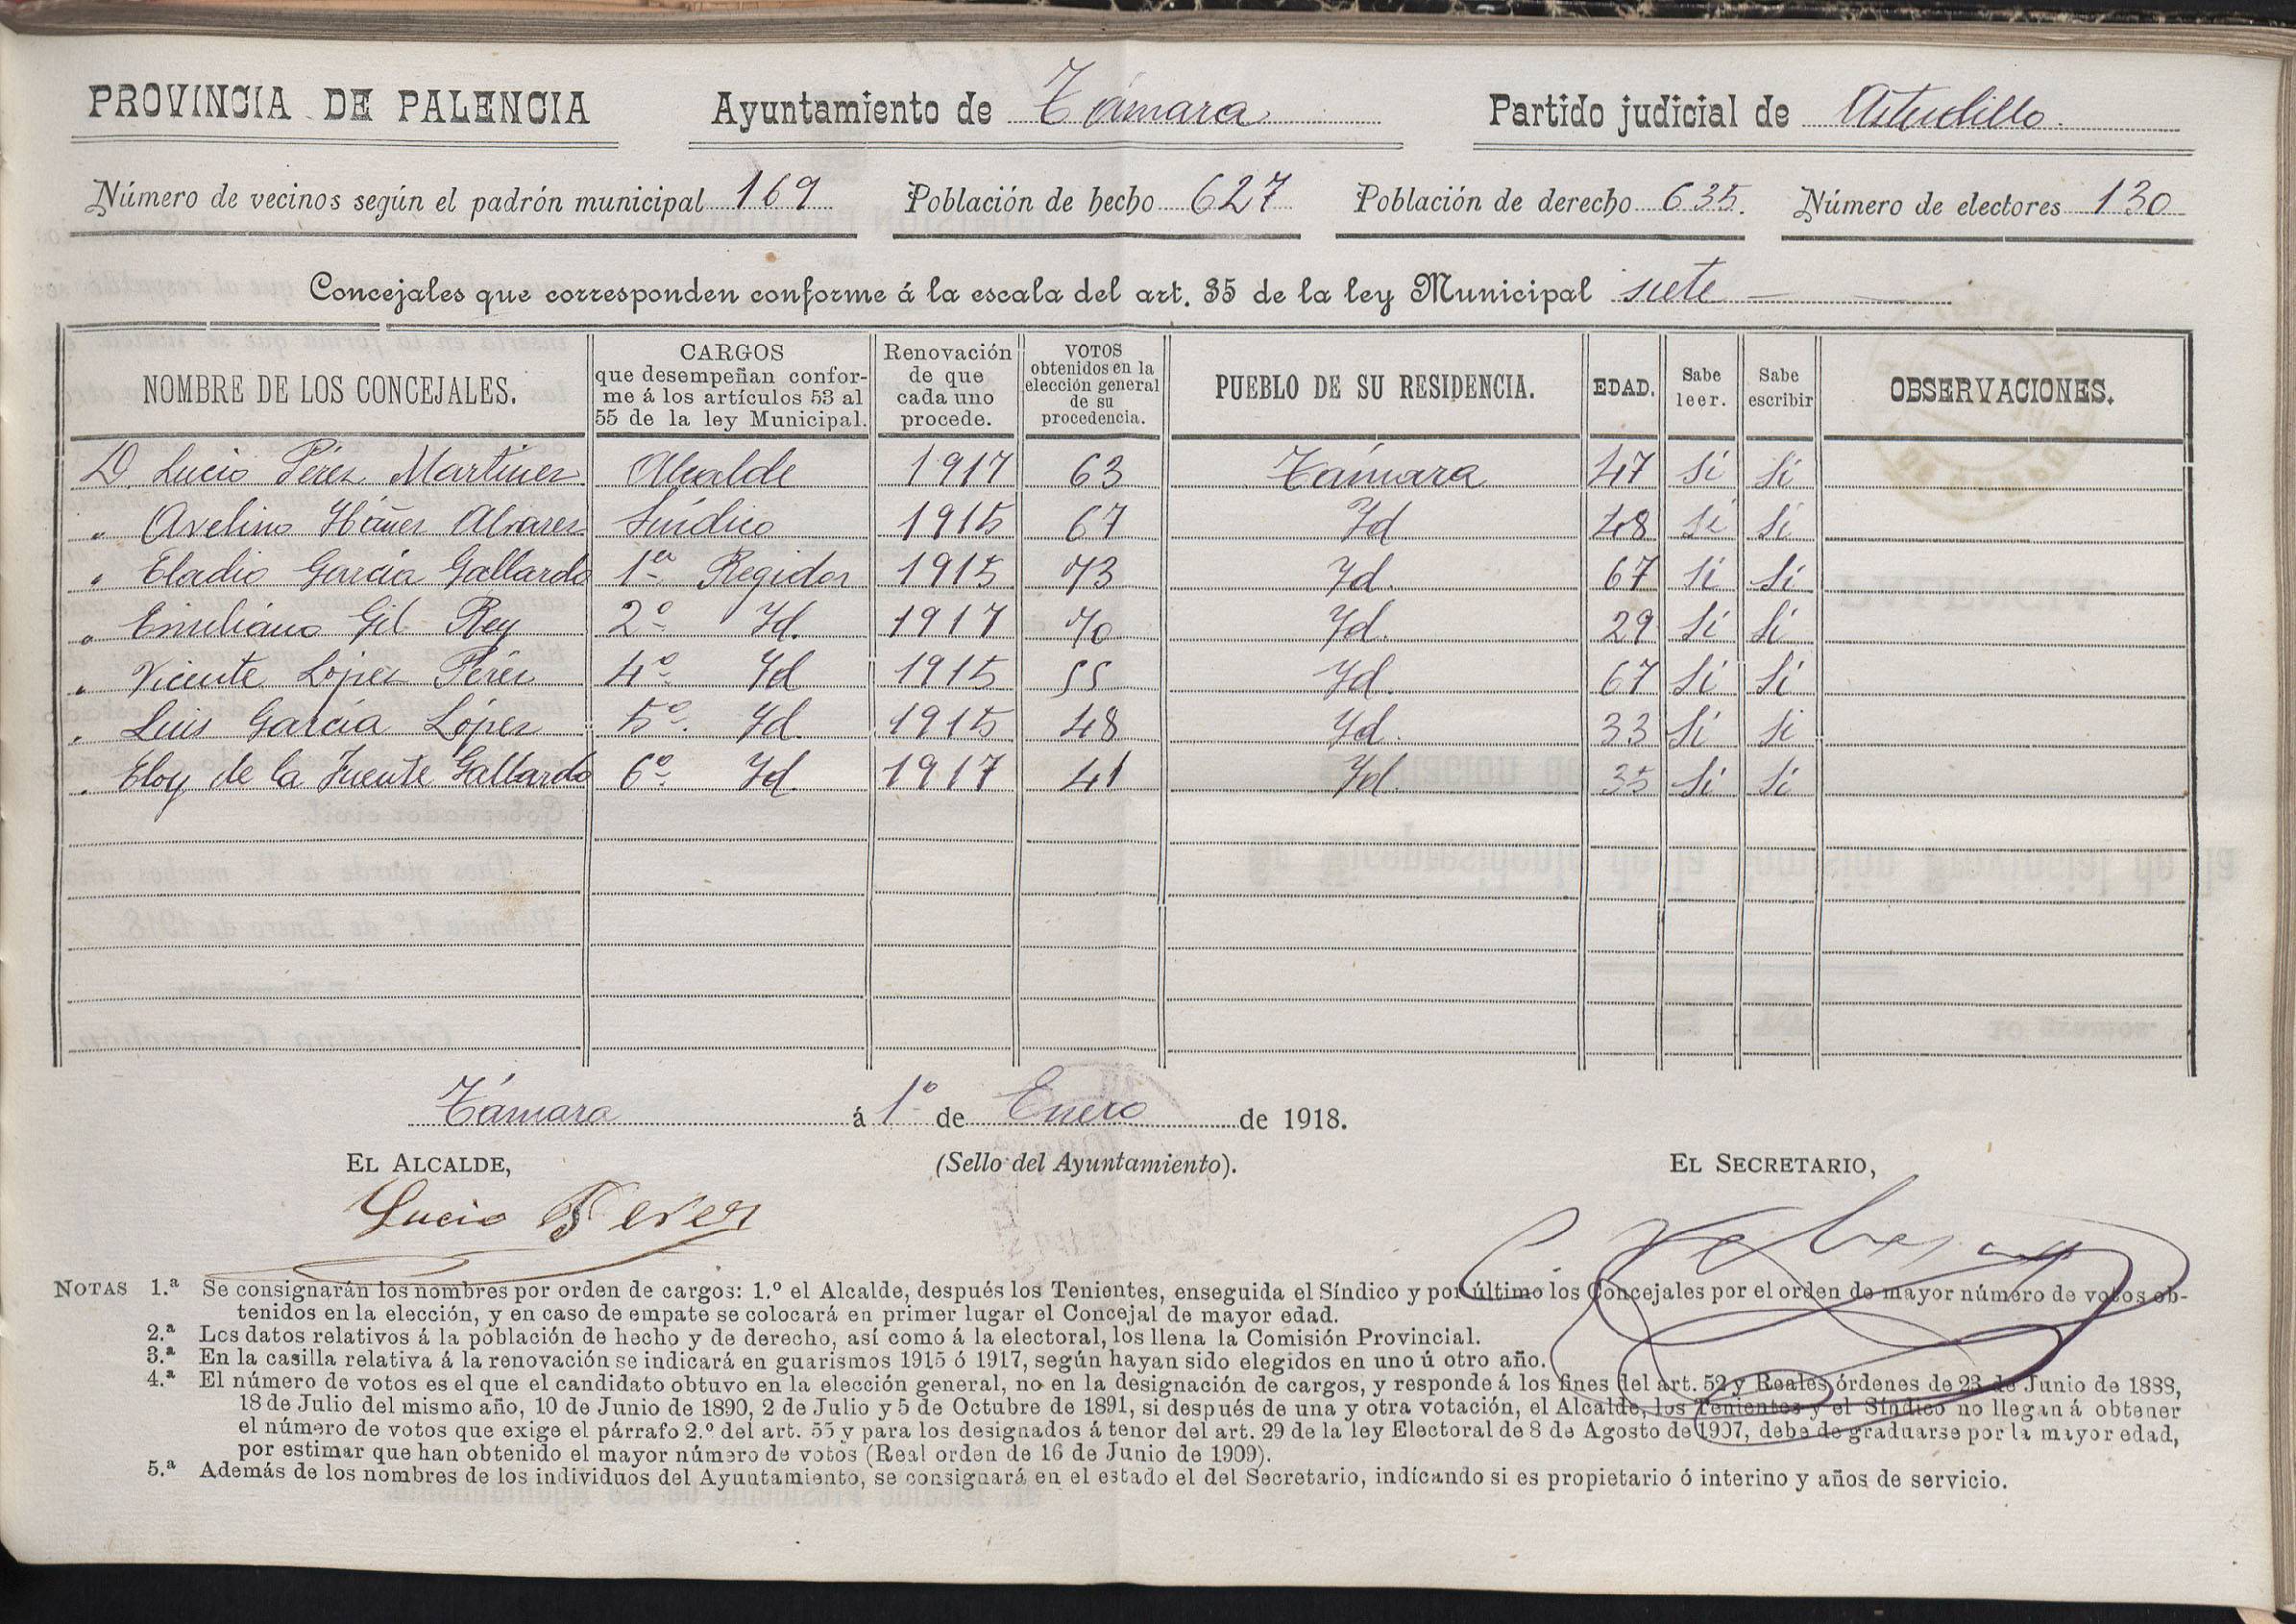 PROVINCIA DE PALENCIA Ayuntamiento de Támara Partido judicial de Astudillo.
Número de vecinos según el padrón municipal 169 Población de hecho 627 Población de derecho 635. Número de electores 130
Concejales que corresponden conforme á la escala del art. 35 de la ley Municipal siete
NOMBRE DE LOS CONCEJALES. CARGOS que desempeñan conforme á los artículos 53 al 55 de la ley Municipal. Renovación de que cada uno procede. VOTOS obtenidos en la elección general de su procedencia. PUEBLO DE SU RESIDENCIA. EDAD. Sabe leer. Sabe escribir OBSERVACIONES.
D. Lucio Pérez Martinez Alcalde 1917 63 Támara 47 Si Si
" Avelino Ibáñez Alvarez Síndico 1915 67 Id 48 Si Si
" Eladio García Gallardo 1er Regidor 1915 73 Id. 67 Si Si
" Emiliano Gil Rey 2º Id. 1917 70 Id. 29 Si Si
" Vicente López Pérez 4º Id 1915 55 Id. 67 Si Si
" Luis García López 5º Id. 1915 48 Id. 33 Si Si
" Eloy de la Fuente Gallardo 6º Id. 1917 41 Id. 35 Si Si
Támara á 1º de Enero de 1918.
EL ALCALDE, (Sello del Ayuntamiento). EL SECRETARIO,
Lucio Perez
NOTAS 1.ª Se consignarán los nombres por orden de cargos: 1.º el Alcalde, después los Tenientes, enseguida el Síndico y por último los Concejales por el orden de mayor número de votos ob-
tenidos en la elección, y en caso de empate se colocará en primer lugar el Concejal de mayor edad.
2.ª Los datos relativos á la población de hecho y de derecho, así como á la electoral, los llena la Comisión Provincial.
3.ª En la casilla relativa á la renovación se indicará en guarismos 1915 ó 1917, según hayan sido elegidos en uno ú otro año.
4.ª El número de votos es el que el candidato obtuvo en la elección general, no en la designación de cargos, y responde á los fines del art. 52 y Reales órdenes de 23 de Junio de 1888,
18 de Julio del mismo año, 10 de Junio de 1890, 2 de Julio y 5 de Octubre de 1891, si después de una y otra votación, el Alcalde, los Tenientes y el Síndico no llegan á obtener
el número de votos que exige el párrafo 2.º del art. 55 y para los designados á tenor del art. 29 de la ley Electoral de 8 de Agosto de 1907, debe de graduarse por la mayor edad,
por estimar que han obtenido el mayor número de votos (Real orden de 16 de Junio de 1909).
5.ª Además de los nombres de los individuos del Ayuntamiento, se consignará en el estado el del Secretario, indicando si es propietario ó interino y años de servicio.